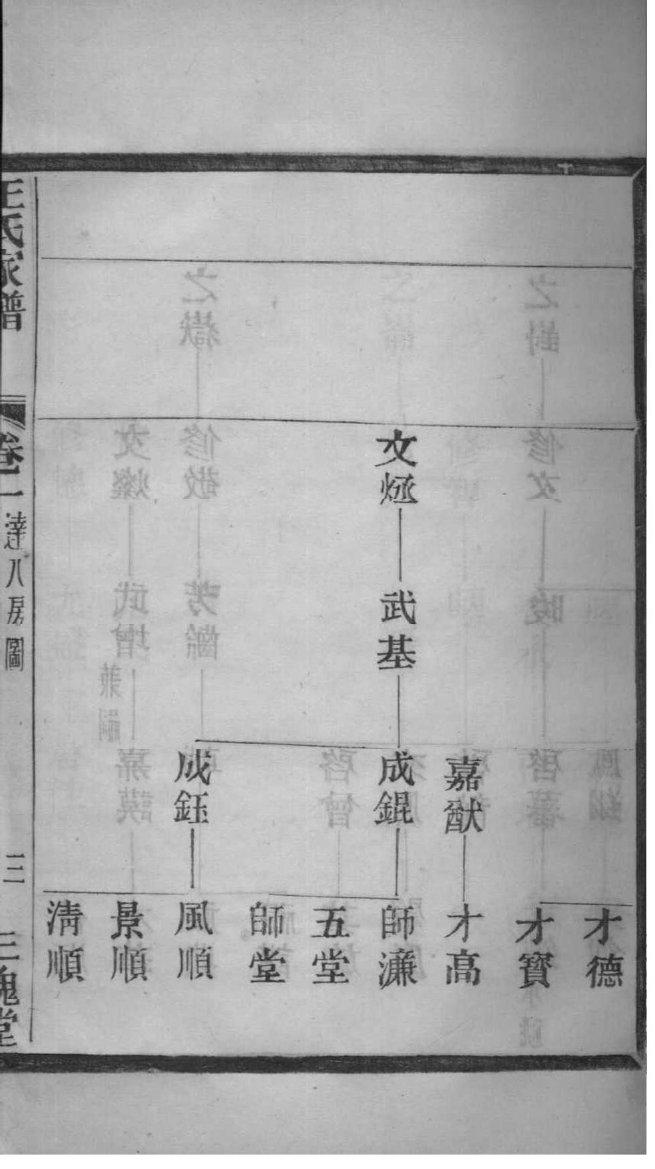 文烶
武基
嘉猷
成錕
成鈺
才德
才寳
才高
師濂
五堂
師堂
風順
景順
淸順
王氏家譜
卷一
達八房圖
三
三槐堂